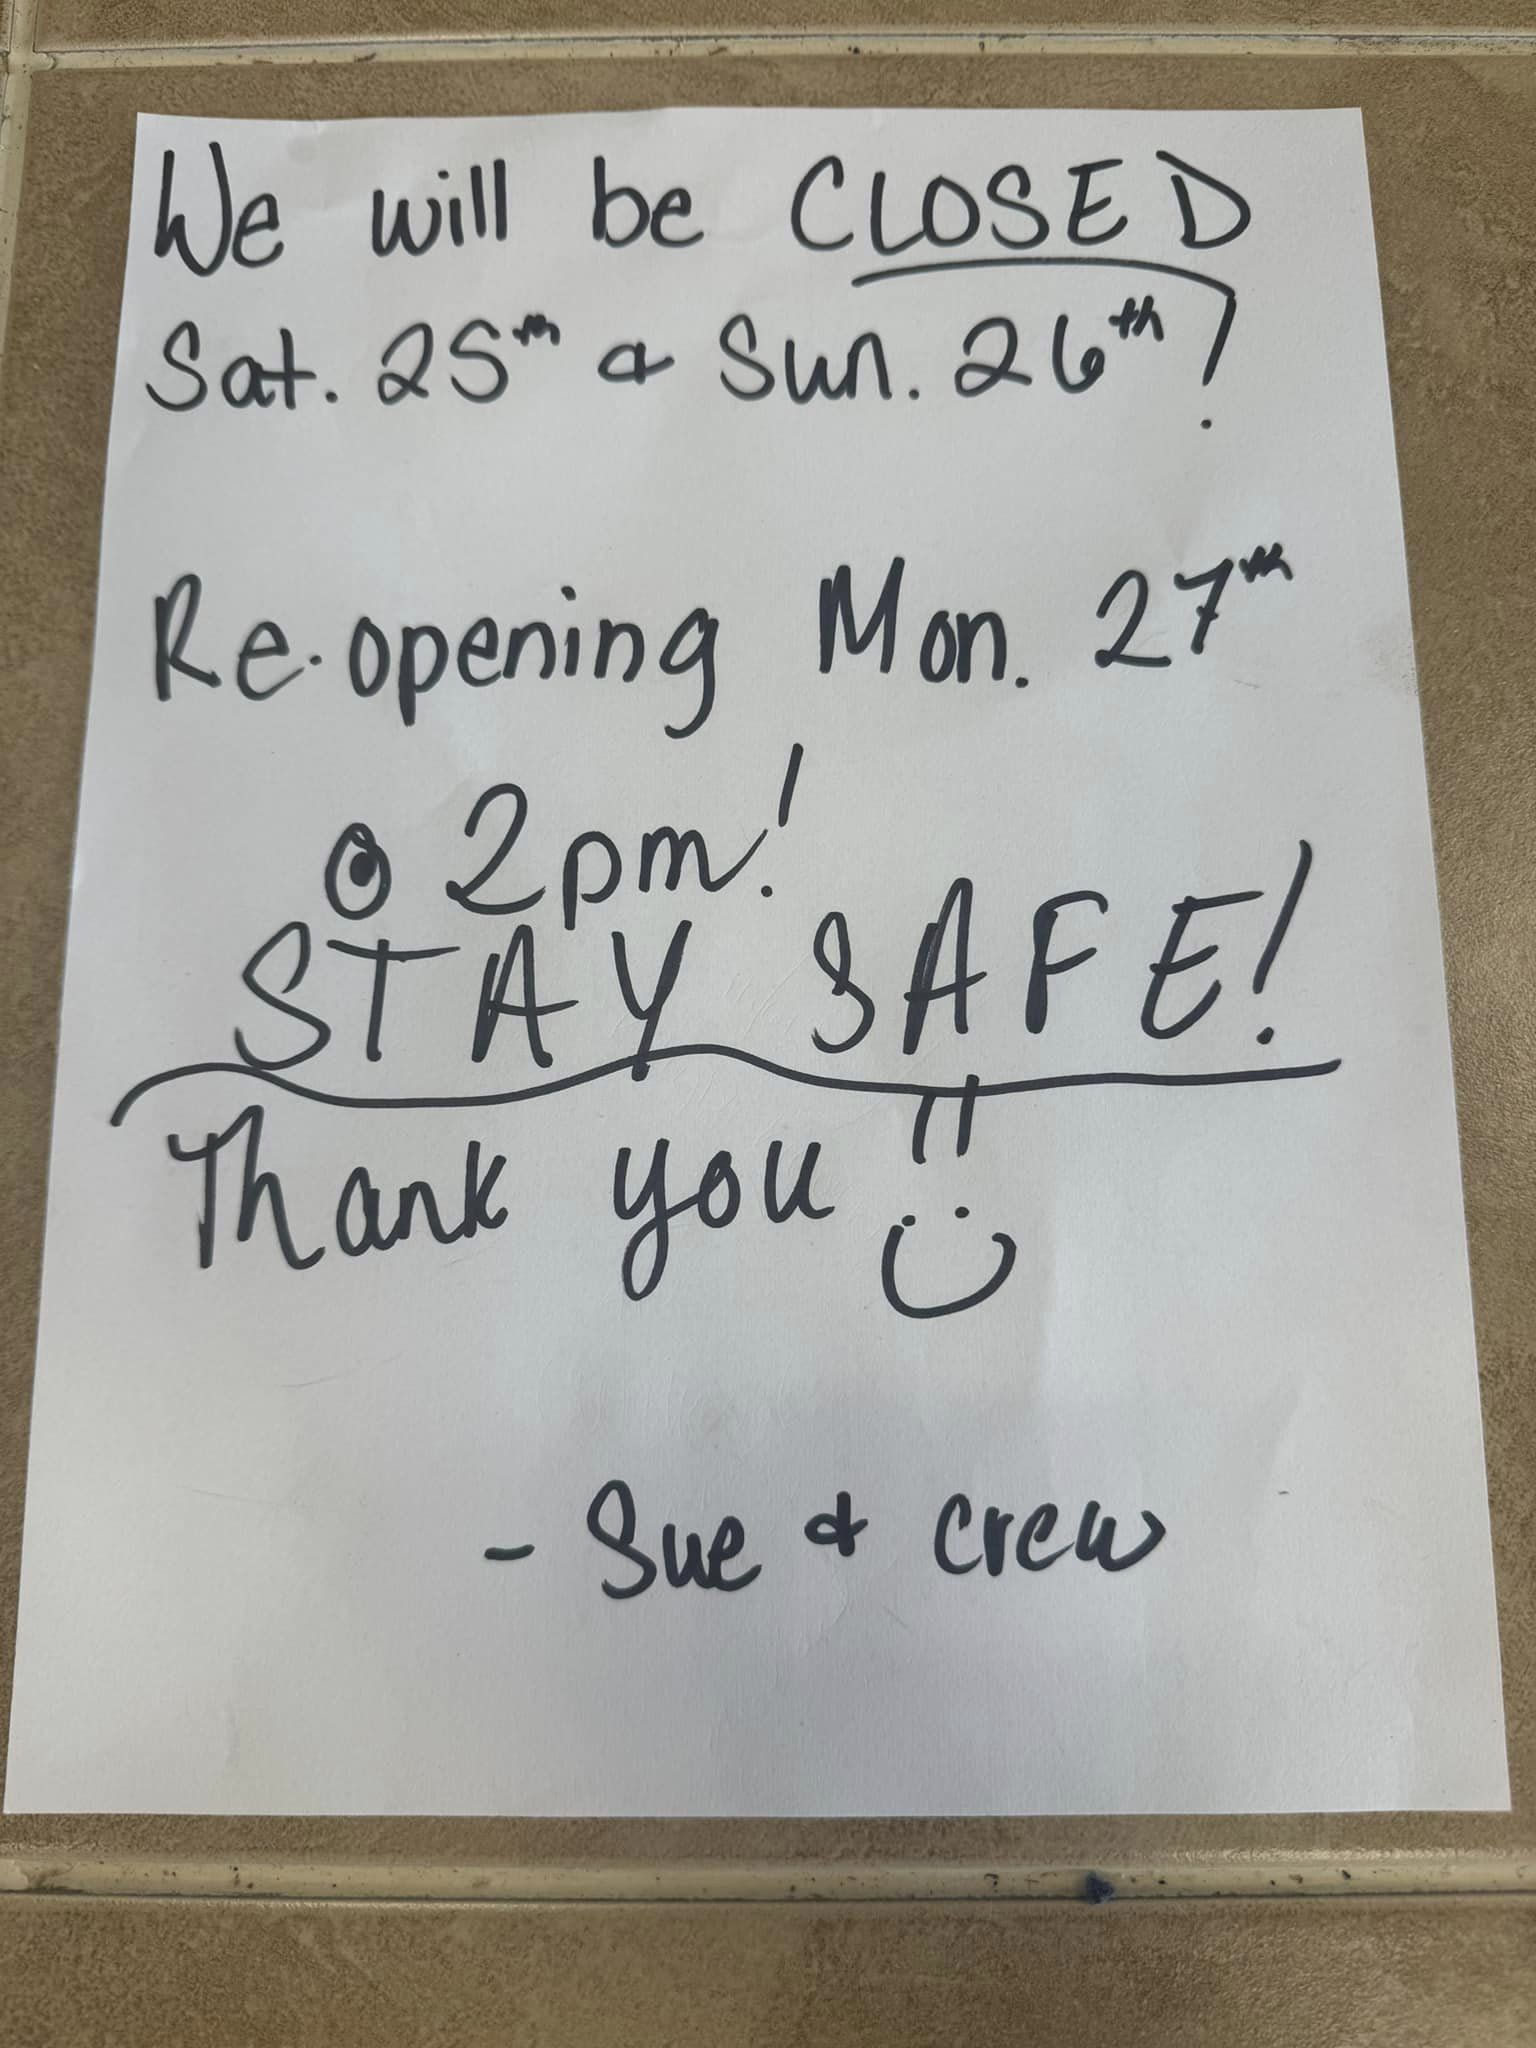 We will be CLOSED
Sat. 25th & Sun. 26th!
Re-opening Mon. 27th
@ 2pm!
STAY SAFE!
Thank you!!
- Sue & crew